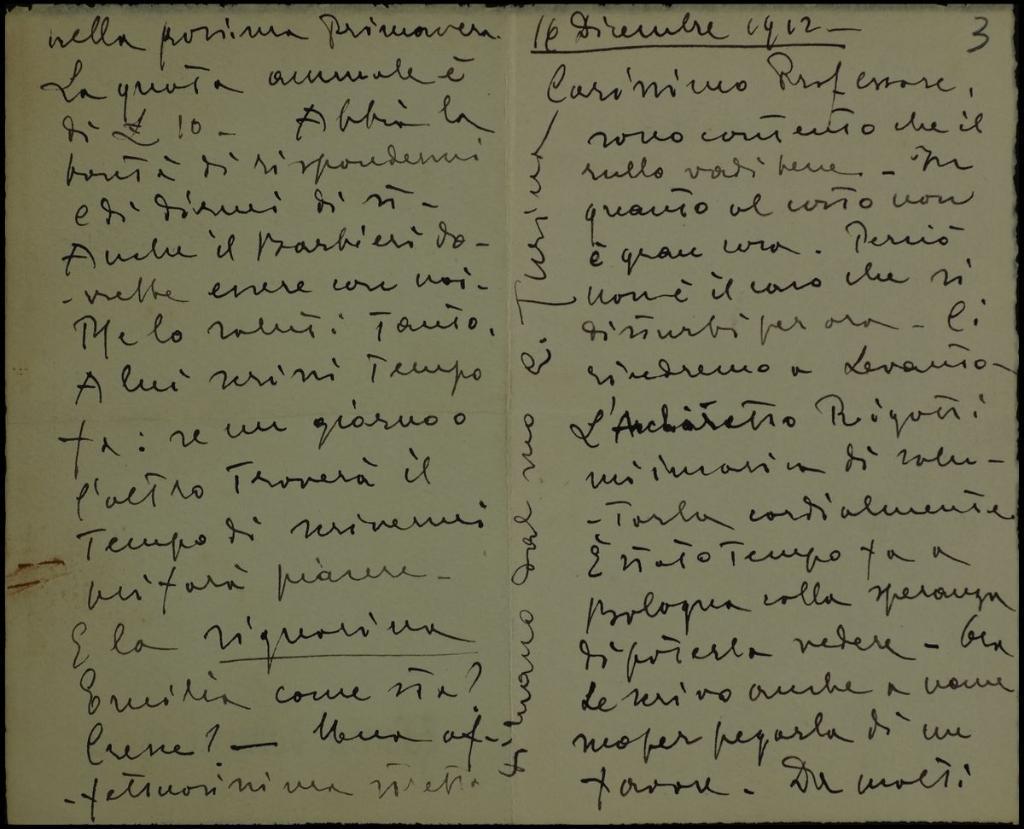 3
16 Dicembre 1912 -
Carissimo Professore,
sono contento che il
rullo vadi bene - In
quanto al costo non
è gran cosa. Perciò
non è il caso che si
disturbi per ora - Ci
rivedremo a Levanto -
L'Architetto Rigotti
mi incarica di salu-
-tarla cordialmente
È stato tempo fa a
Bologna colla speranza
di poterla vedere - Ora
Le scrivo anche a nome
suo per pregarla di un
favore - Da molti
nella prossima Primavera.
La quota annuale è
di £ 10 - Abbia la
bontà di rispondermi
e di dirmi di sì -
Anche il Barbieri do-
-vrebbe essere con noi -
Me lo saluti tanto.
A lui scrissi tempo
fa: se un giorno o
l'altro troverà il
tempo di scrivermi
mi farà piacere -
E la signorina
Emilia come sta?
Cresce? - Una af-
-fettuosissima stretta
di mano dal suo